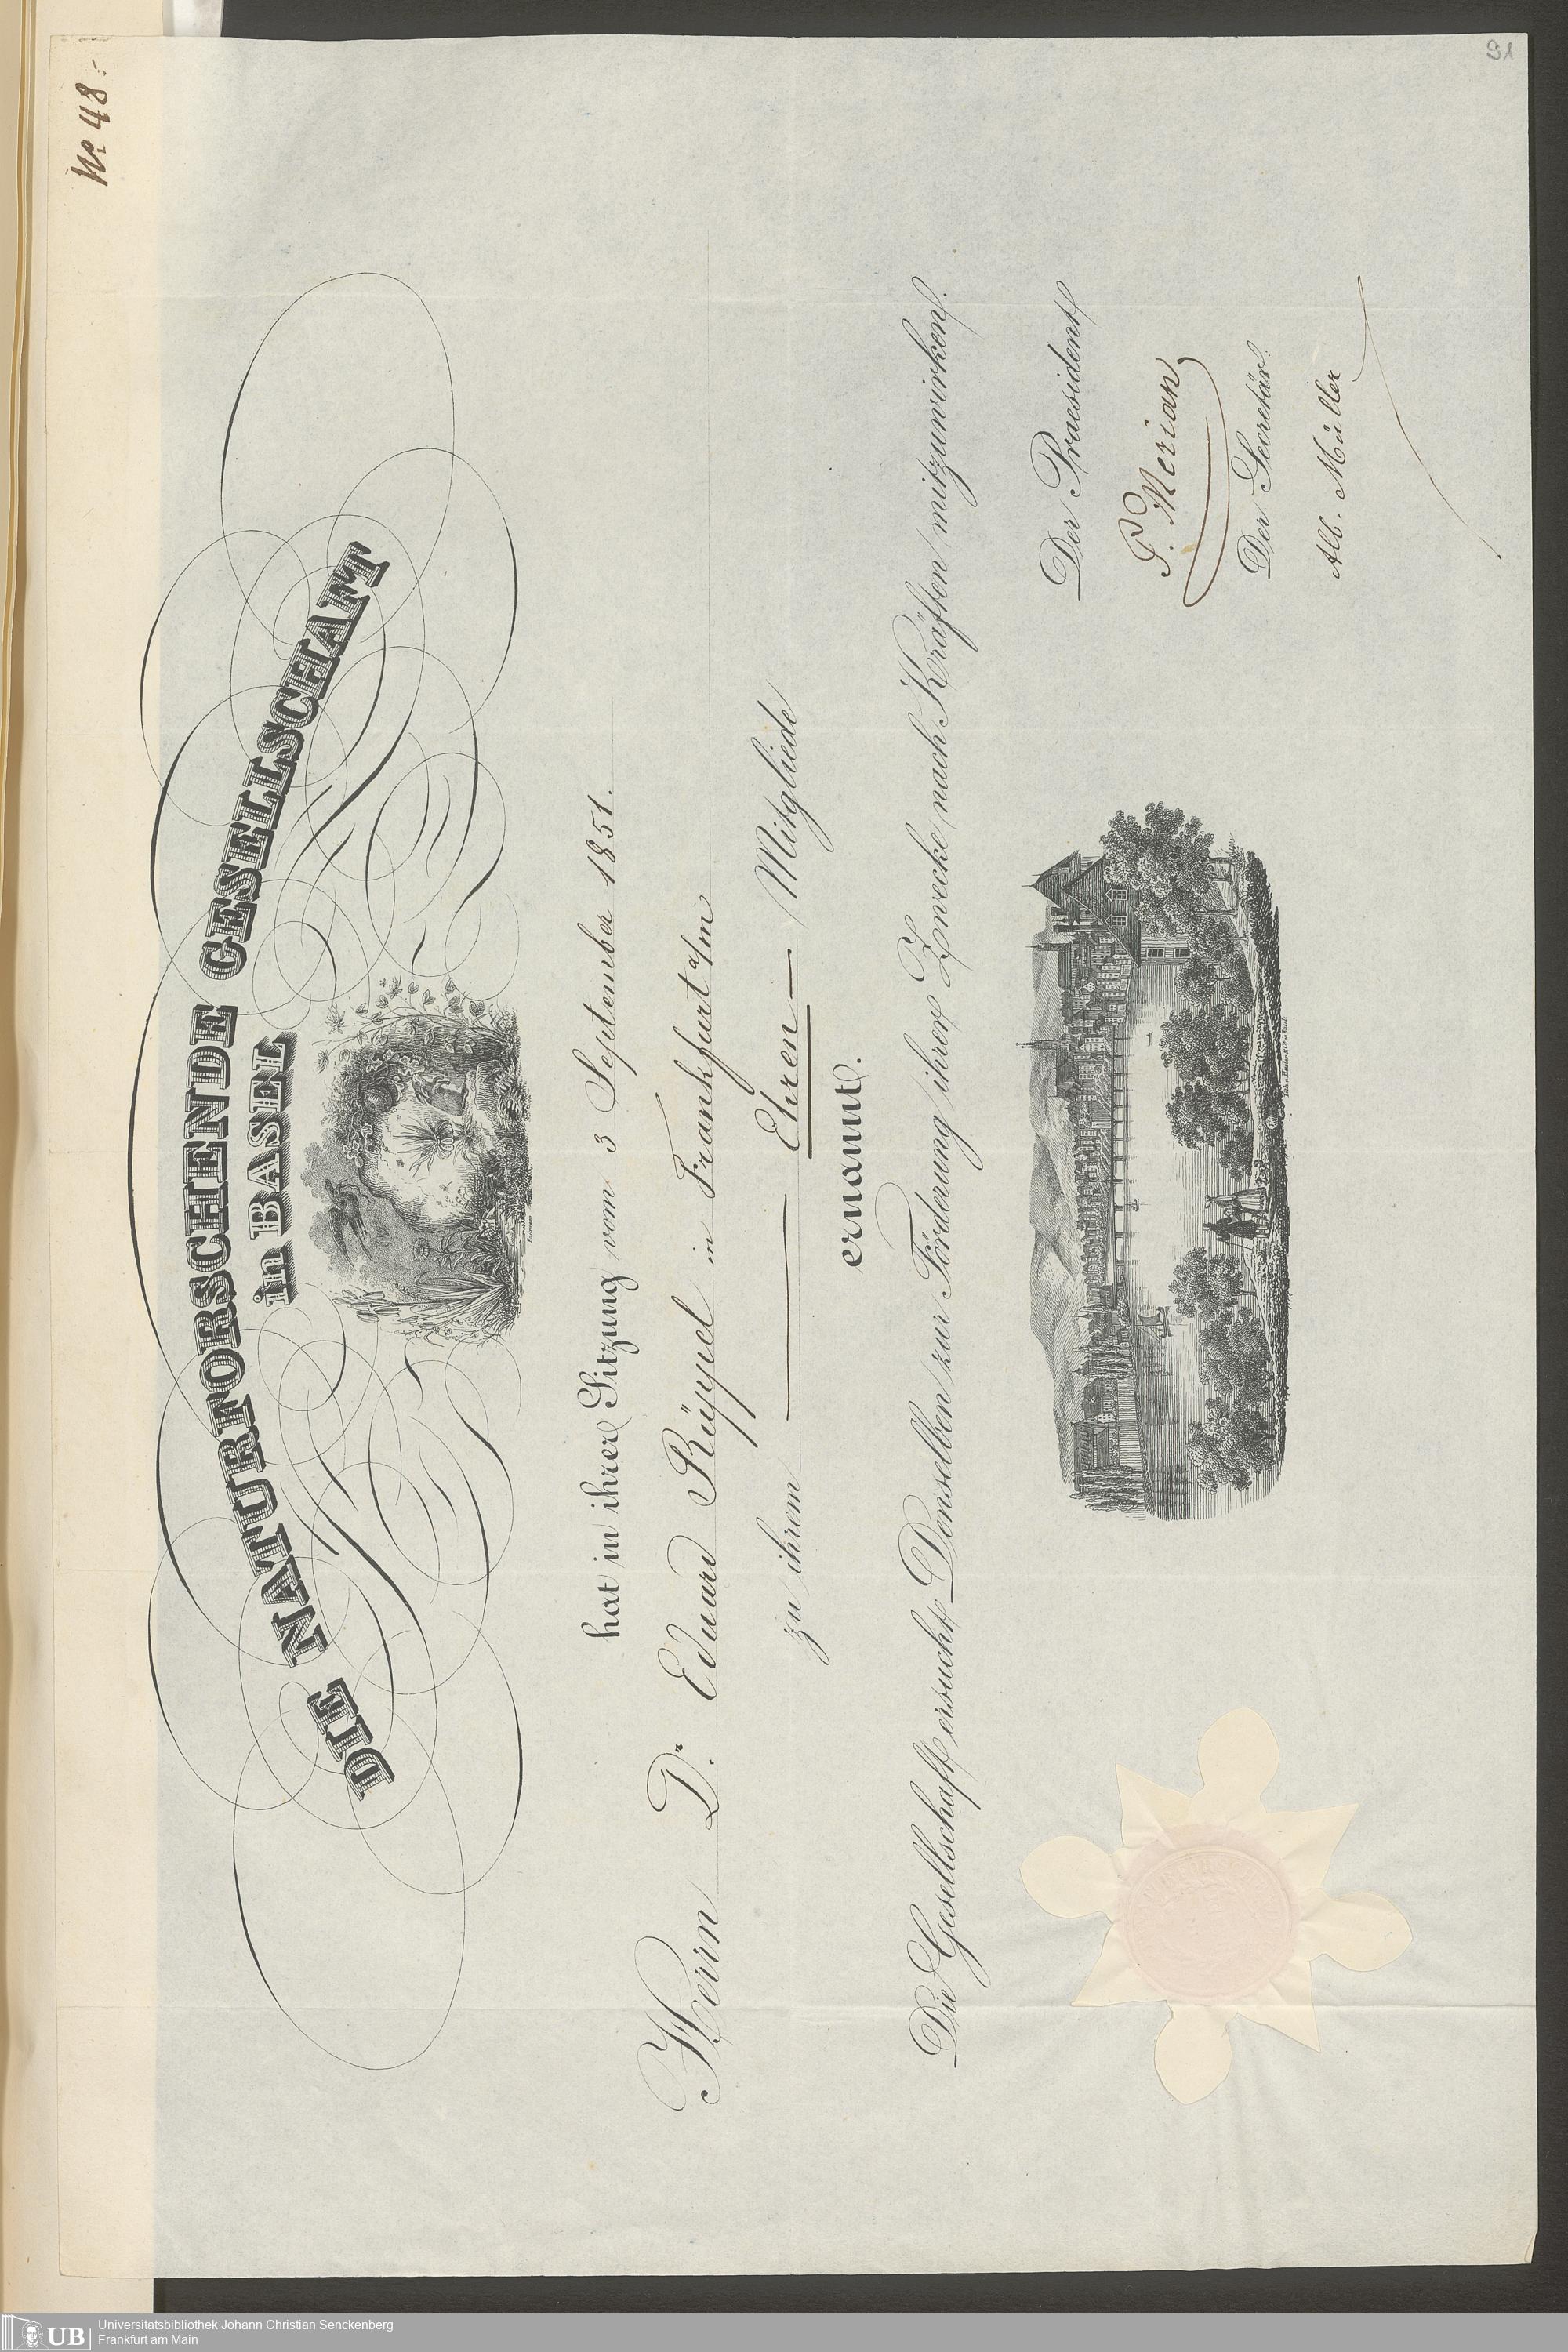 No. 48.
91
DIE NATURFORSCHENDE GESELLSCHAFT
in BASEL
hat in ihrer Sitzung vom 3 September 1851.
Herrn Dr. Eduard Rüppel in Frankfurt a/m
zu ihrem Ehren Mitgliede
ernannt.
Die Gesellschaft ersucht Denselben zur Förderung ihrer Zwecke nach Kräften mitzuwirken.
Der Praesident
P. Merian
Der Secretär
Alb. Müller
UB
Universitätsbibliothek Johann Christian Senckenberg
Frankfurt am Main